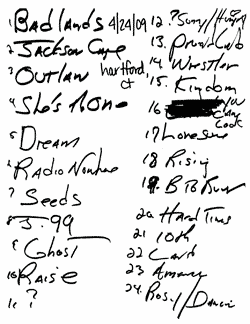 1. Badlands 4/24/09
2 Jackson Cage
3 Outlaw Hartford Ct
4 She's the One
5 Dream
6 Radio Nowhere
7 Seeds
8 J. 99
9 Ghost
10 Raise
11. ?
12. ? Sunny / Hungry
13. Proud
14. Wrestler
15. Kingdom
16
17 Lonesome
18 Rising
19. BTO Run
20 Hard Times
21 10th
22 Land
23 Amer
24. Rosy / Dancin